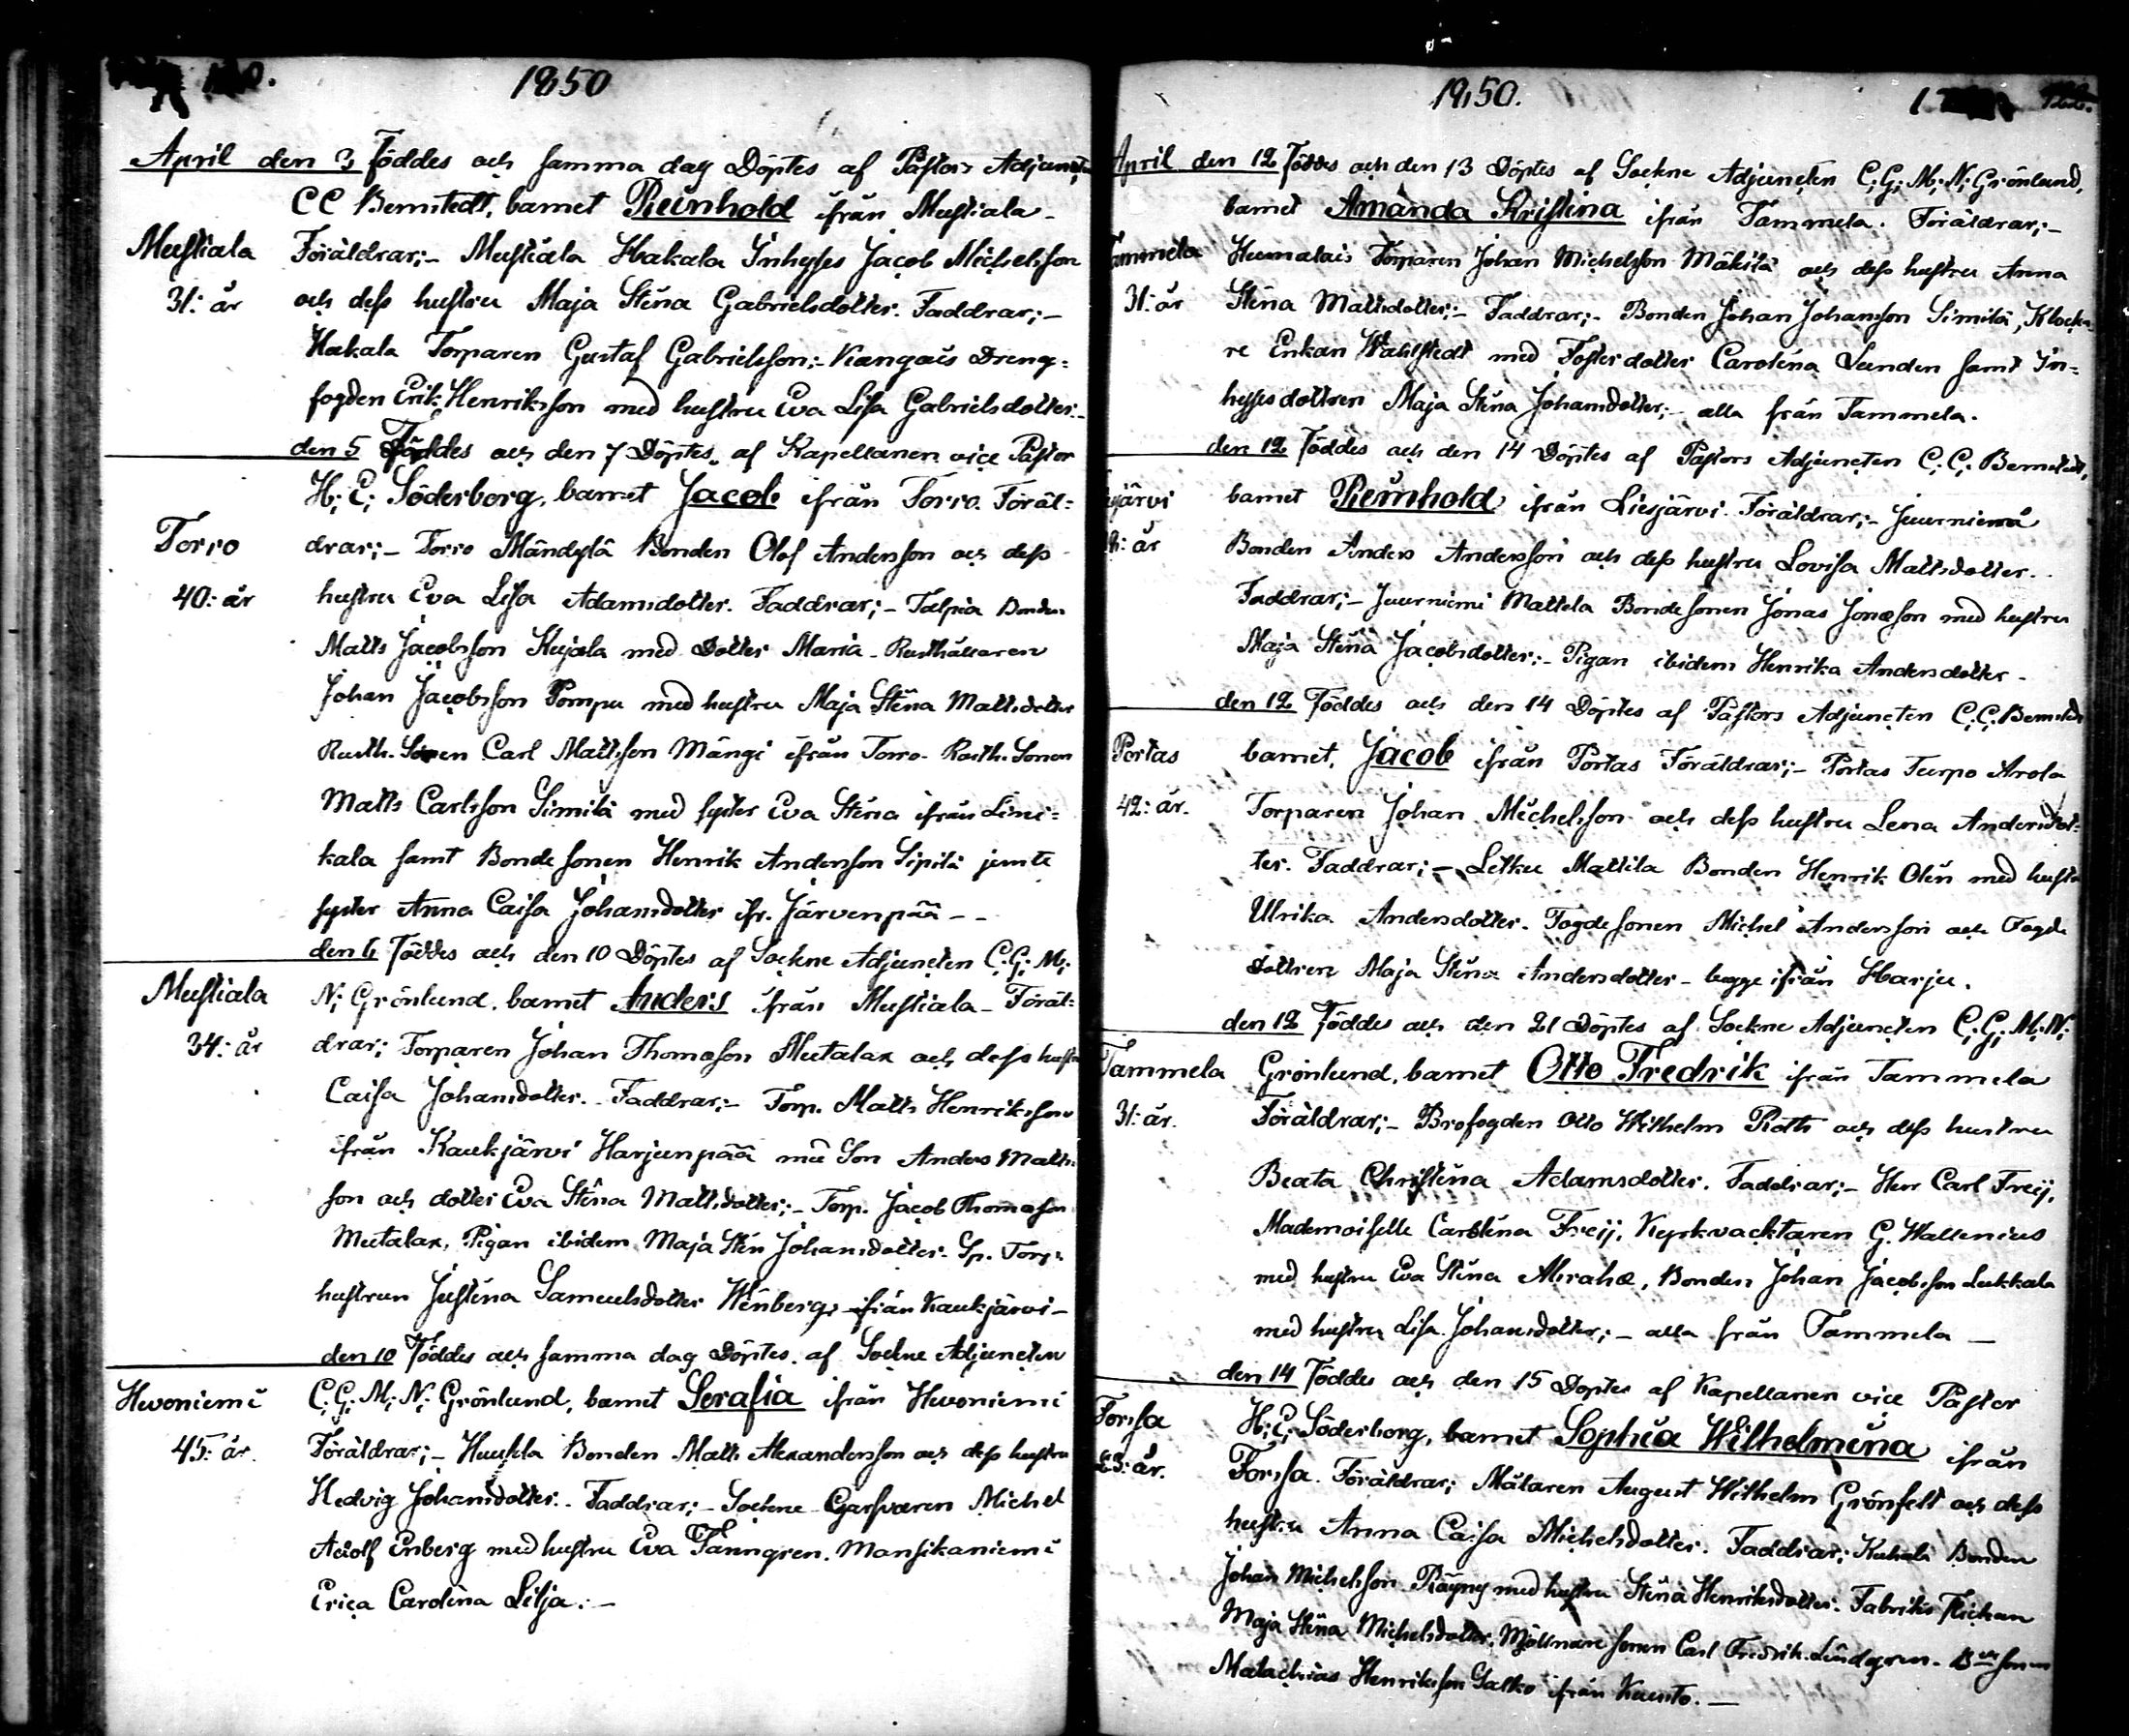 1850
April den 3 Föddes och samma dag Döptes af Pastors Adjuncten
CC Bernstedt, barnet Reinhold ifrån Mustiala
Mustiala Föräldrar;- Mustiala Hakala Inhyses Jacob Michelsson
31: år och dess hustru Maja Stina Gabrielsdotter. Faddrar;-
Hakala Torparen Gustaf Gabrielsson;- Kangais Dreng-
fogden Erik Henriksson med hustru Eva Lisa Gabrielsdotter.-
den 5 Föddes och den 7 Döptes af Kapellanen vice Pastor
H; E; Söderborg, barnet Jacob ifrån Torro. Föräl-
Torro drar;- Torro Mändylä Bonden Olof Andersson och dess
40: år hustru Eva Lisa Adamsdotter. Faddrar;- Talpia Bonden
Matts Jacobsson Kujala med Dotter Maria - Rusthållaren
Johan Jacobsson Pompu med hustru Maja Stina Mattsdotter
Rusth. Sonen Carl Mattsson Mängi ifrån Torro. Rusth. Sonen
Matts Carlsson Simila med syster Eva Stina ifrån Limi-
kala samt Bonde sonen Henrik Andersson Sipilä jemte
syster Anna Caisa Johansdotter ifr. Järvenpää --
den 6 Föddes och den 10 Döptes af Sockne Adjuncten C; G; M;
Mustiala N; Grönlund, barnet Anders ifrån Mustiala - Föräl-
34: år drar; Torparen Johan Thomasson Mutalax och dess hustru
Caisa Johansdotter. Faddrar;- Torp. Matts Henriksson
ifrån Kaukjärvi Harjunpää me Son Anders Matts-
son och dotter Eva Stina Mattsdotter;- Torp. Jacob Thomasson
Mutalax, Pigan ibidem Maja Stin Johansdotter - Sp. Torp-
hustrun Justina Samuelsdotter Wenberg, ifrån Kaukjärvi -
den 10 Föddes och samma dag Döptes af Sockne Adjuncten
Huoniemi C; G; M; N; Grönlund, barnet Serafia ifrån Huoniemi
45: år. Föräldrar;- Bonden Matts Alexandersson och dess hustru
Hedvig Johansdotter. Faddrar;- Sockne Garfvaren Michel
Adolf Enberg med hustru Eva Tanngren. Mansikaniemi
Erica Carolina Lilja.-
1850.
April den 12 Föddes och den 13 Döptes af Sockne Adjuncten C; G; M; N; Grönlund,
barnet Amanda Kristina ifrån Tammela. Föräldrar;-
Tammela Humalais Torparen Johan Michelsson Mäkilä och dess hustru Anna
31: år Stina Mattsdotter;- Faddrar;- Bonden Johan Johansson Simila, Klocka-
re Enkan Wahlstedt med Foster dotter Carolina Lunden samt In-
hyses dottren Maja Stina Johansdotter;- alla från Tammela.
den 12 Föddes och den 14 Döptes af Pastors Adjuncten C; C; Bernstedt,
järvi barnet Reinhold ifrån Liesjärvi. Föräldrar;- Juurniemi
år Bonden Anders Andersson och dess hustru Lovisa Mattsdotter.
Faddrar;- Juurniemi Mattela Bonde sonen Jonas Jonasson med hustru
Maja Stina Jacobsdotter;- Pigan ibidem Henrika Andersdotter -
den 12 Föddes och den 14 Döptes af Pastors Adjuncten C; C; Bernstedt
Portas barnet, Jacob ifrån Portas Föräldrar;- Portas Turpo Arola
42: år. Torparen Johan Michelsson och dess hustru Lena Andersdot-
ter. Faddrar;- Letku Mattila Bonden Henrik Olin med hustru
Ulrika Andersdotter. Fogde sonen Michel Andersson och Fogde
dottren Maja Stina Andersdotter - begge ifrån Harju.
den 12 Föddes och den 21 Döptes af Sockne Adjuncten C; G; M; N;
Tammela Grönlund, barnet Otto Fredrik ifrån Tammela
31: år. Föräldrar;- Brofogden Otto Wilhelm Roth och dess hustru
Beata Christina Adamsdotter. Faddrar;- Herr Carl Freij,
Mademoiselle Carolina Freij, Kyrkvacktaren G. Wallenius
med hustru Eva Stina, Bonden Johan Jacobsson Lukkala
med hustru Lisa Johansdotter;- alla från Tammela -
den 14 Föddes och den 15 Döptes af Kapellanen vice Pastor
Forssa H; E; Söderborg, barnet Sophia Wilhelmina ifrån
23: år. Forssa. Föräldrar; Målaren August Wilhelm Grönfelt och dess
hustru Anna Caisa Michelsdotter. Faddrar; Kuhala Bonden
Johan Michelsson Räyny med hustru Stina Henriksdotter. Fabriks Flickan
Maja Stina Michelsdotter, Mjölnare sonen Carl Fredrik Lindgren. Bde sonen
Malachias Henriksson Talko ifrån Kuusto.-